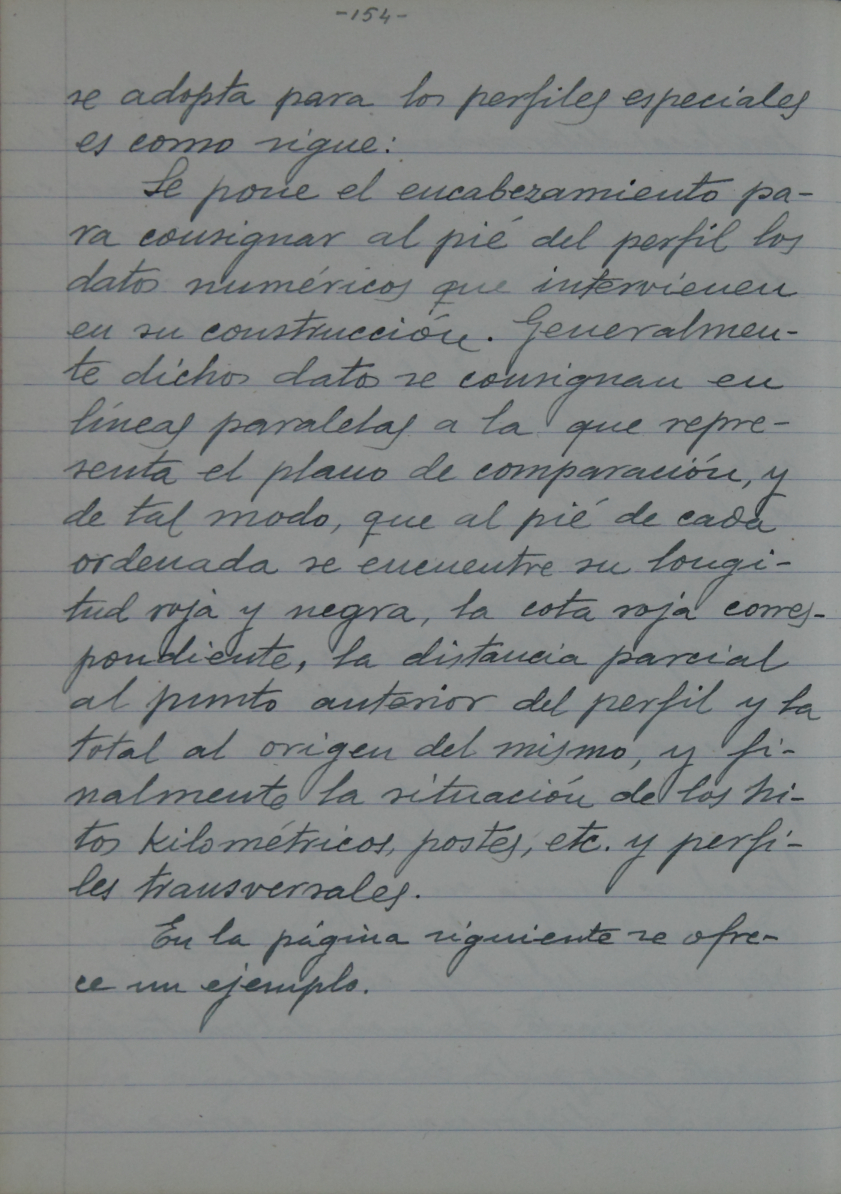 -154-
se adopta para los perfiles especiales
es como sigue:
Se pone el encabezamiento pa-
ra consignar al pié del perfil los
datos numéricos que intervienen
en su construcción. Generalmen-
te dichos datos se consignan en
líneas paralelas a la que repre-
senta el plano de comparación, y
de tal modo, que al pié de cada
ordenada se encuentre su longi-
tud roja y negra, la cota roja corres-
pondiente, la distancia parcial
al punto anterior del perfil y la
total al origen del mismo, y fi-
nalmente la situación de los hi-
tos kilométricos, postes, etc. y perfi-
les transversales.
En la página siguiente se ofre-
ce un ejemplo.